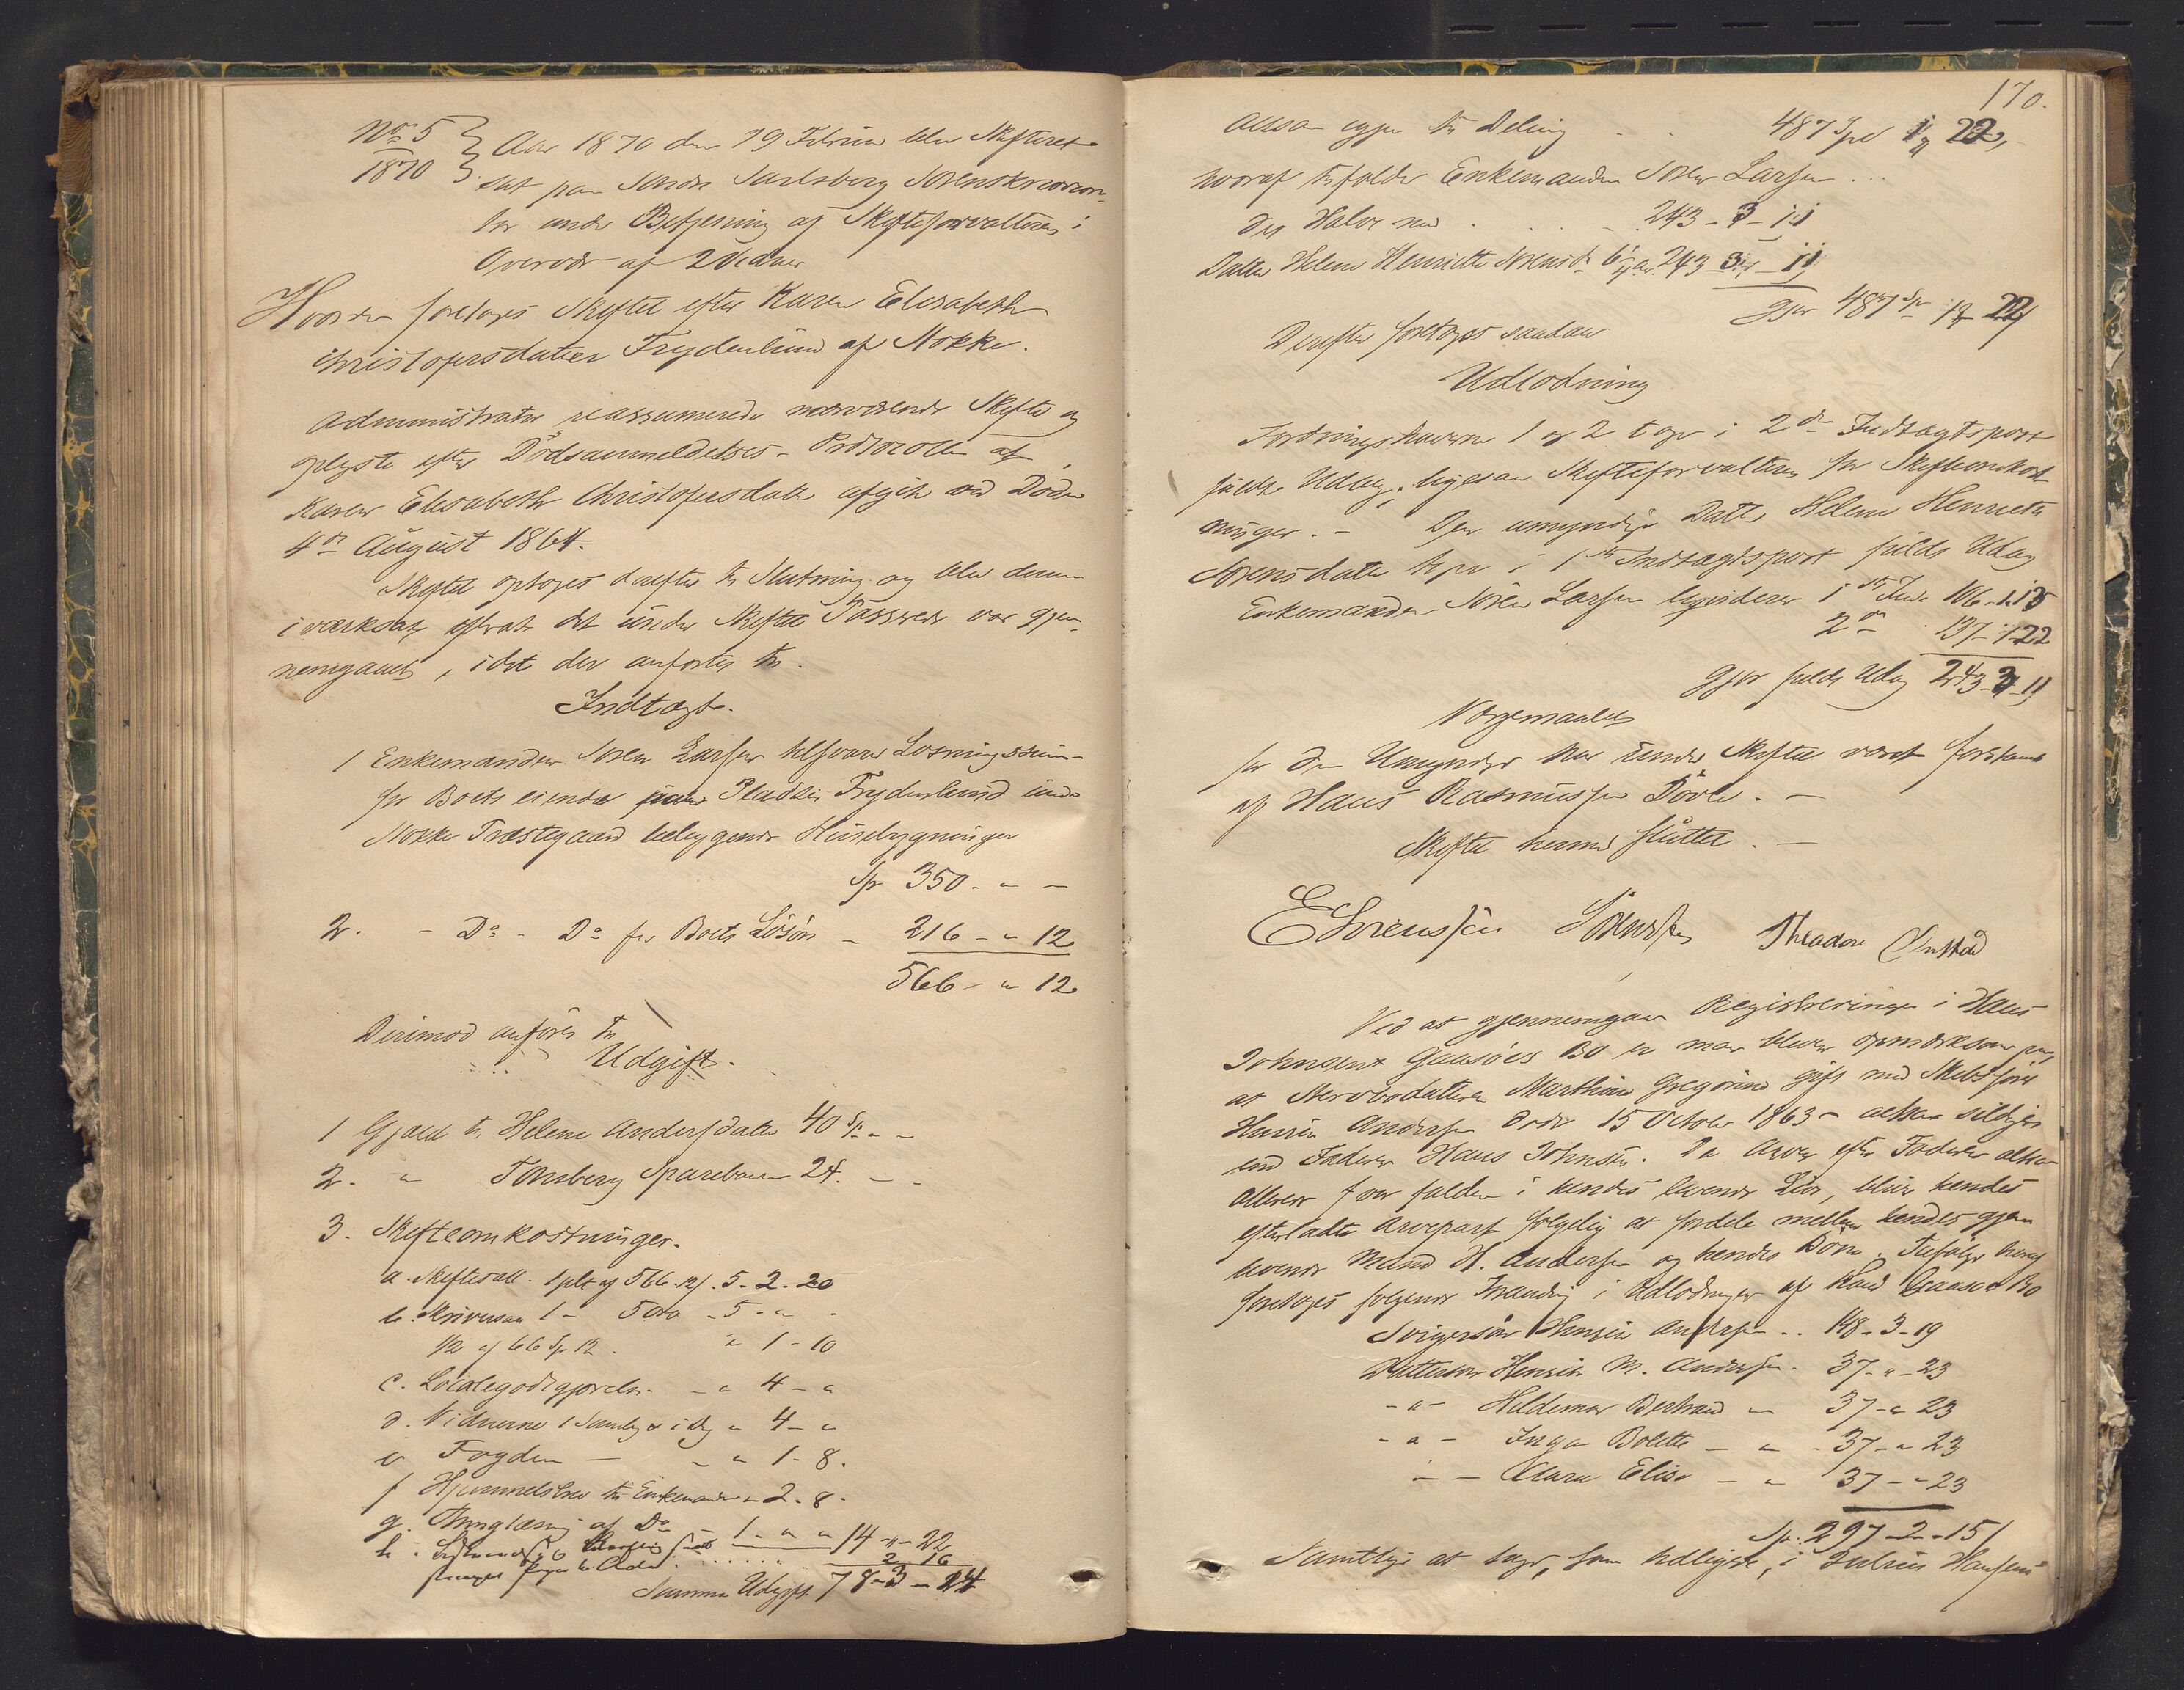 No 5
1870
Aar 1870 den 19 Februar blev Skifteret
sat paa Søndre Jarlsberg Sorenskrivercon-
tor under Betjening af Skifteforvalteren i
Overvær af 2 Vidner
Hvorda foretoges Skiftet efter Karen Elisabeth
Christophersdatter Frydenlund af Nokke.
Administrator reassumerede nærværende Skifte og
oplyste efter Dödsanmeldelses-Protocollen at
Karen Elisabeth Christophersdatter afgik ved Döden
4de August 1864.
Skiftet optoges derefter til Slutning og blev denne
iværksat efterat det under Skiftet Passerede var gjen-
nemgaaet, idet der anfortes til.
Indtægt.
1 Enkemanden Sören Larsen tilsvarer Losningssum
for Boets eiende paa Pladsen Frydenlund under
Nokke Præstegaard beliggende Huusbygninger
Sp 350 - " -
2. - Do - Do for Boets Lösöre - 216 - " 12
566 - " 12
Derimod anföres til
Udgift.
1 Gjæld til Helene Andersdatter 40 Sp. " -
2. " Tönsberg Sparebank 24. - -
3. Skifteomkostninger.
a. Skiftesall. 1 pCt af 566 Sp. 5 - 2 - 20
b. Skriversal 1 - 500 - 5 - " -
1/2 af 66 Sp 12. " 1 - 10
c. Localegodtgjörelse - " 4 - "
d. Vidnerne 1 Samling & i Dag " 4 - "
e Fogden - - " 1 - 8.
f Hjemmelsbrev til Enkemanden " 2 - 8 -
g. Thinglæsning af Do - 1 - " " 14 - " - 22
h. 2 - 16
Summa Udgift 78 - 3 - 14
170.
altsaa igjen til Deling . . 487 Spd 1 22,
hvoraf tilfalder Enkemanden Sören Larsen ...
det Halve med . . . 243 - 3 - 11
Datter Helene Henriette Sörensd. 6 1/4 Aar 243 - 3 - 11
gjör 487 Sp 1 22
Derefter foretoges saadan
Udlodning
Fordringshaverne 1 og 2 tager i 2den Indtægtspost
fuldt Udlæg, ligesaa Skifteforvalteren for Skifteomkost-
ninger. - Den umyndige Datter Helene Henriette
Sörensdatter tager i 1ste Indtægtspost fuldt Udlæg
Enkemanden Sören Larsen ligesaa i 1ste Indt. 106 - 1. 13
2den 137 - 1 22
gjör fuldt Udlæg 243 - 3 - 11
Vergemaalet
for den Umyndige har under Skiftet været forestaaet
af Hans Rasmussen Dövle. -
Skiftet hermed sluttet. -
E Sörensen Sörensen Theodor Onstad
Ved at gjennemgaa Registreringen i Hans
Johnsens Gaasöes Bo er man bleven opmærksom paa,
at Stervbodatteren Marthine Gregorine gift med Skibsförer
Henrik Andersen döde 15 October 1863 - altsaa sildigere
end Faderen Hans Johnsen. Da Arven efter Faderen altsaa
allerede var falden i hendes levende Live, bliver hendes
efterladte Arvepart fölgelig at fordele mellem hendes gjen-
levende Mand H. Andersen og hendes Börn. Tilfölge heraf
foretoges fölgende Forandring i Udlodningen af Hans Gaasö's Bo
Svigersön Henrik Andersen .. 148 - 3 - 19
Dattersön Henrik M. Andersen - 37 - " - 23
- " - Hildemar Bertrand " 37 - " 23
- " - Inga Bolette - " - 37 - " 23
- " - Clara Elise - " 37 - " 23
Sp. 297 - 2 - 15
Samtlige at tage, som Udlagte, i Julius Hansens